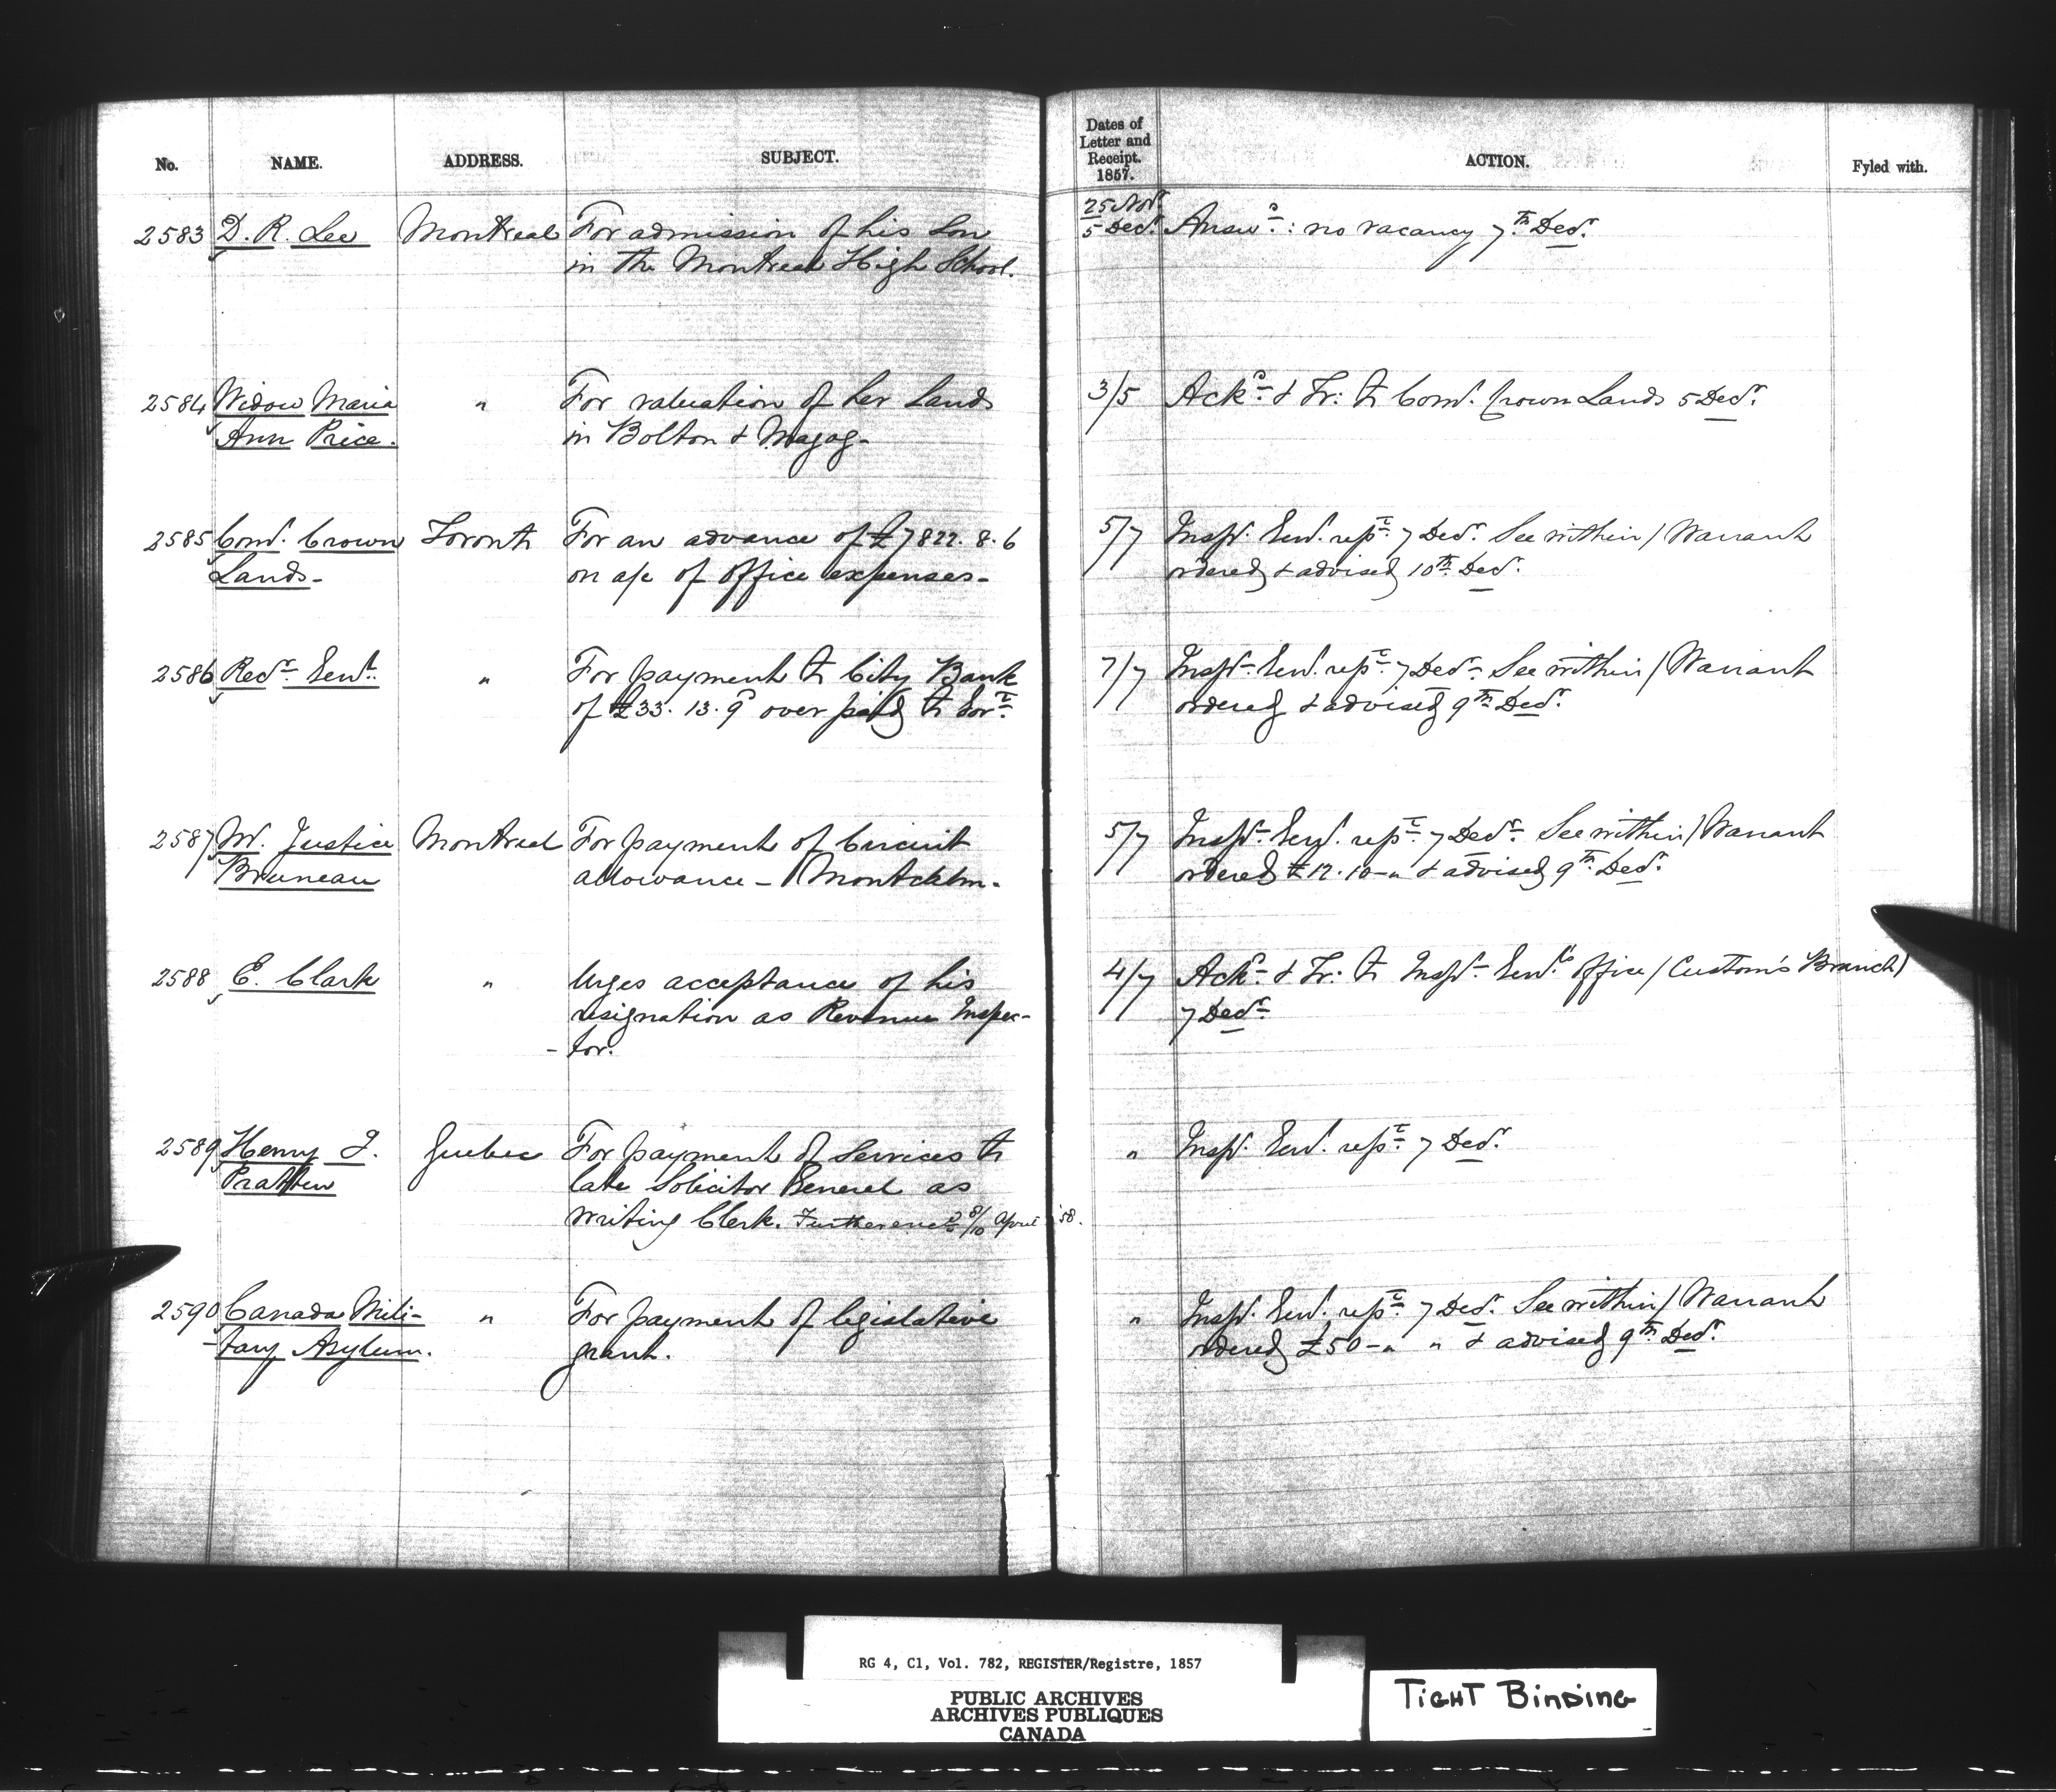 No. NAME. ADDRESS. SUBJECT. Dates of Letter and Receipt. 1857. ACTION. Fyled with.
2583 D. R. Lee Montreal For admission of his Son 25 Nov. 5 Decr. Answd. : no vacancy 7th Decr.
in the Montreal High School.
2584 Widow Maria " For valuation of her Lands 3/5 Ackd. & Tr: to Comr. Crown Lands 5 Decr.
Ann Price. in Bolton & Magog -
2585 Comr. Crown Toronto For an advance of £7822. 8. 6 5/7 Inspr. Genl. rept. 7 Decr. See within / Warrant
Lands - on a/c of office expenses - ordered & advised 10th Decr.
2586 Recr. Genl. " For payment to City Bank 7/7 Inspr. Genl. rept. 7 Decr. See within / Warrant
of £33. 13. 9 over paid to Govt. ordered & advised 9th Decr.
2587 Mr. Justice Montreal For payment of Circuit 5/7 Inspr. Genl. rept. 7 Decr. See within / Warrant
Bruneau allowance - / Montcalm. ordered £12. 10 - " & advised 9th Decr.
2588 E. Clark " Urges acceptance of his 4/7 Ackd. & Tr: to Inspr. Genl's office / Custom's Branch /
resignation as Revenue Inspec- 7 Decr.
- tor.
2589 Henry J. Quebec For payment of Services to " Inspr. Genl. rept. 7 Decr.
Pratten late Solicitor General as
writing Clerk. Further 8/10 April '58.
2590 Canada Mili- " For payment of legislative " Inspr. Genl. rept. 7 Decr. See within / Warrant
- tary Asylum. grant. ordered £50 - " " & advised 9th Decr.
RG 4, C1, Vol. 782, REGISTER/Registre, 1857
PUBLIC ARCHIVES
ARCHIVES PUBLIQUES
CANADA
TIGHT BINDING